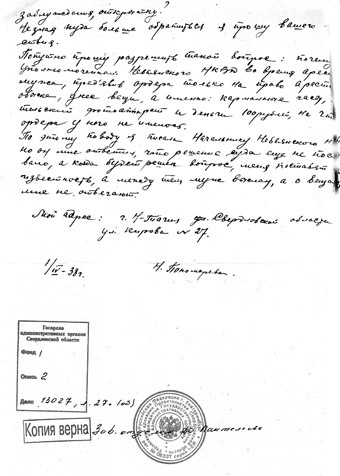 заблуждения, открытку?
Незная куда больше обратиться я прошу вашего
ствия.
Попутно прошу разрешить такой вопрос: почему
уполномоченный Невьянского НКВД во время арес
мужа, предъявив ордера только на право ареста
обыска, взял вещи, а именно: карманные часы,
тельский фотоаппарат и деньги 100 рублей, на что
ордера у него не имелось.
По этому поводу я писала Начальнику Невьянского НК
но он мне ответил, что решения суда еще не пос
вало, а когда будет решен вопрос, меня поставят
известность, а между тем муж выслан, а о вещах
мне не отвечают.
Мой адрес: г. Н-Тагил Свердловской области
ул. Кирова № 27.
1/IV-38 г. Н. Пономарева.
Госархив
административных органов
Свердловской области
Фонд 1
Опись 2
Дело 13027, л. 27 (об)
Копия верна
Зав. отделом